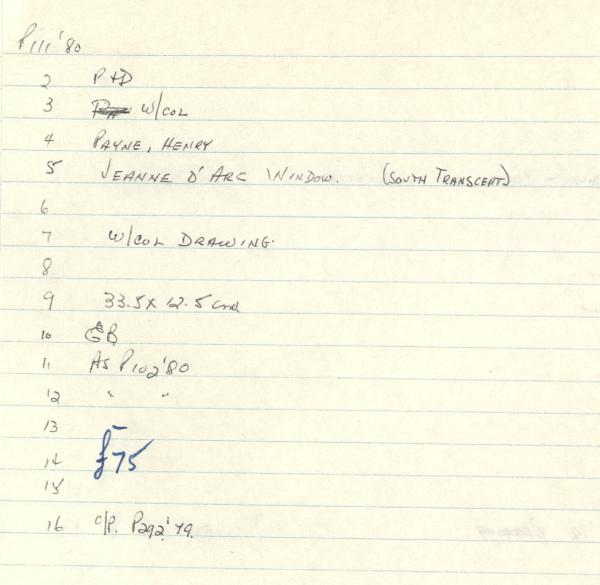 P111'80
2 P+D
3 W/COL
4 PAYNE, HENRY
5 JEANNE D'ARC WINDOW. (SOUTH TRANSCEPT)
6
7 W/COL DRAWING.
8
9 33.5 X 12.5 cms.
10 GB
11 AS P102'80
12 " "
13 –
14 £75
15
16 C/P. P292'79.